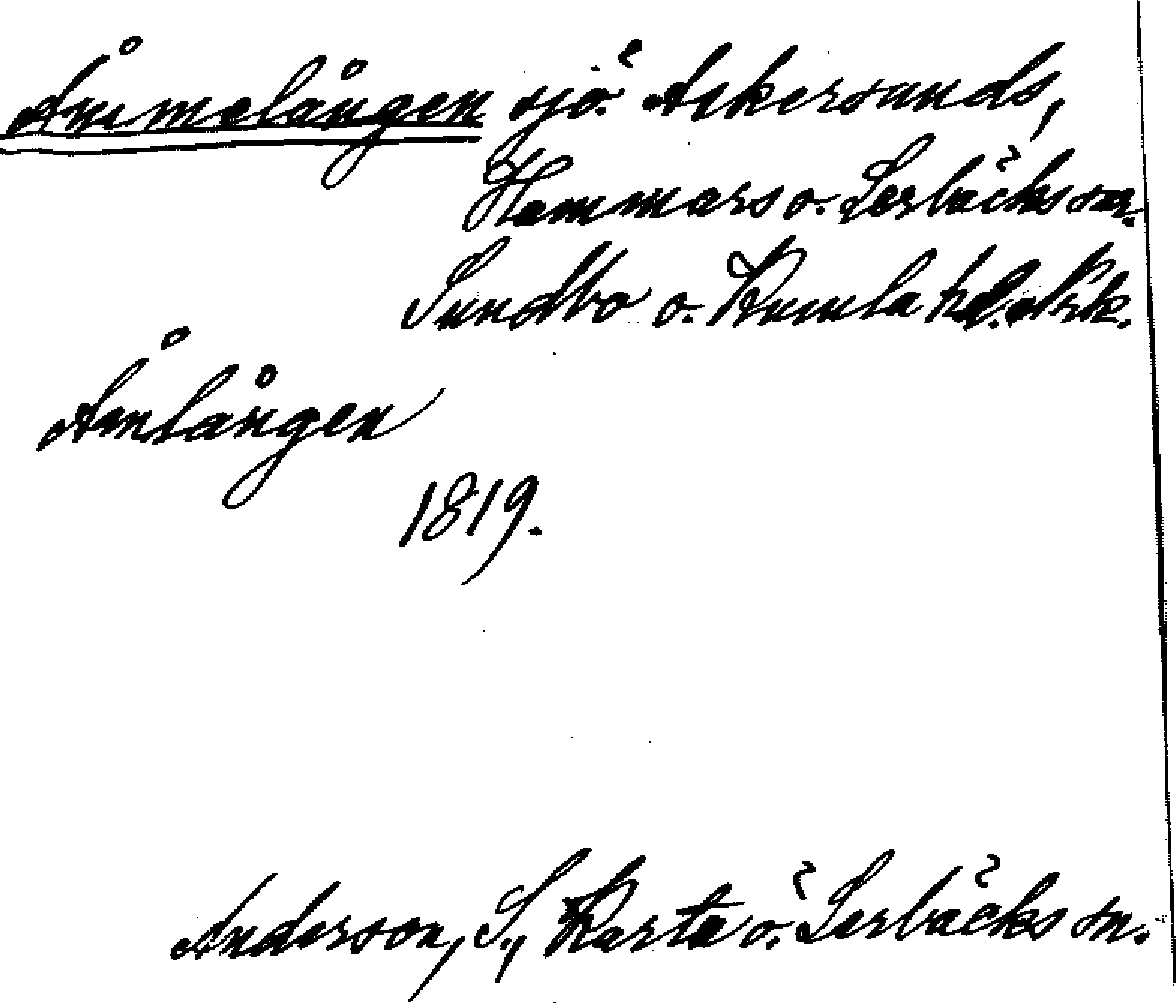 Åmmelången sjö. Askersunds,
Hammars o. Lerbäcks snr.
Sundbo o. Kumla hd. Nrk.
Åmlången
1819.
Anderson, S., Karta ö. Lerbäcks sn.